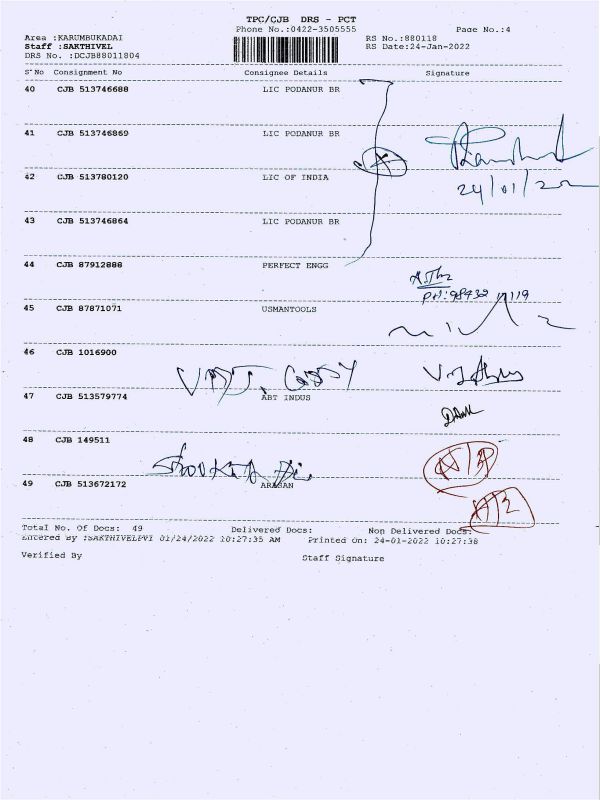 TPC/CJB DRS - PCT
Phone No.:0422-3505555 Page No.:4
Area :KARUMBUKADAI RS No.:880118
Staff :SAKTHIVEL RS Date:24-Jan-2022
DRS No. :DCJB88011804
S'No Consignment No Consignee Details Signature
40 CJB 513746688 LIC PODANUR BR
41 CJB 513746869 LIC PODANUR BR
42 CJB 513780120 LIC OF INDIA
24/01/22
43 CJB 513746864 LIC PODANUR BR
44 CJB 87912888 PERFECT ENGG
45 CJB 87871071 USMANTOOLS
46 CJB 1016900
47 CJB 513579774 ABT INDUS
48 CJB 149511
49 CJB 513672172 ARASAN
Total No. Of Docs: 49 Delivered Docs: Non Delivered Docs:
Entered By :SAKTHIVELPVI 01/24/2022 10:27:35 AM Printed On: 24-01-2022 10:27:38
Verified By Staff Signature